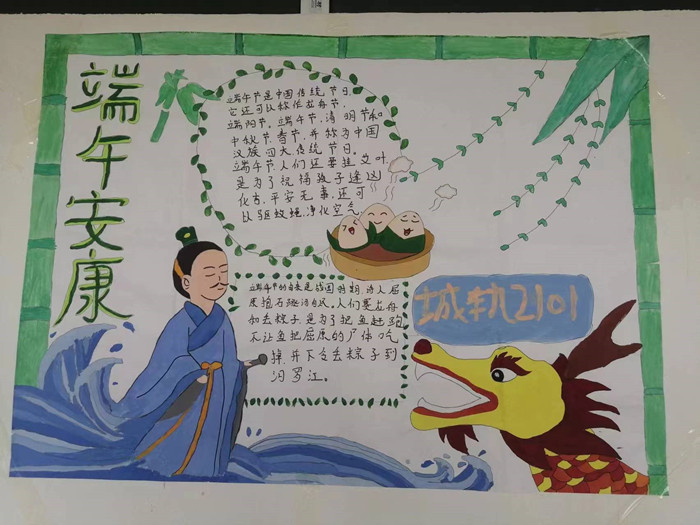 端午安康
端午节是中国传统节日
它还可以称作龙舟节、
端阳节。端午节、清明节和
中秋节、春节、并称为中国
汉族四大传统节日。
端午节人们还要挂艾叶
是为了祝福孩子逢凶
化吉,平安无事,还可
以驱蚊蝇、净化空气
端午节的由来是战国时期诗人屈
原抱石自尽,人们要龙舟
和丢粽子是为了把鱼赶跑
不让鱼把屈原的尸体吃
掉并下令丢粽子到
汨罗江。
城轨2101